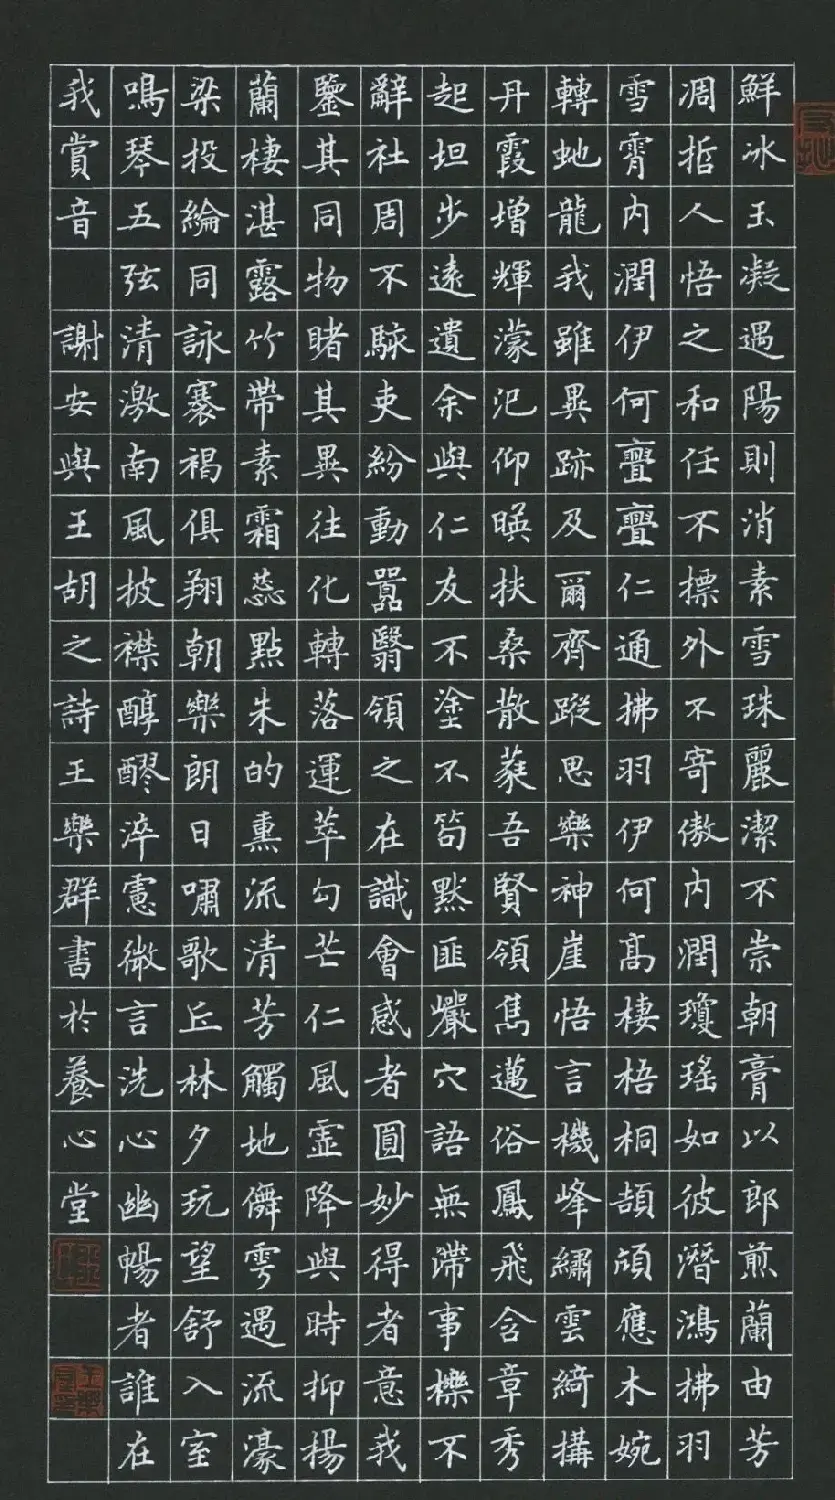 鮮冰玉凝遇陽則消素雪珠麗潔不崇朝膏以郎煎蘭由芳
凋哲人悟之和任不摽外不寄傲內潤瓊瑤如彼潛鴻拂羽
雪霄內潤伊何亹亹仁通拂羽伊何高棲梧桐頡頏應木婉
轉虵龍我雖異跡及爾齊蹤思樂神崖悟言機峰繡雲綺構
丹霞增輝濛汜仰暎扶桑散蕤吾賢領雋邁俗鳳飛含章秀
起坦步遠遺余與仁友不塗不笱默匪巖穴語無滯事櫟不
辭社周不駭吏紛動囂翳領之在識會感者圓妙得者意我
鑒其同物睹其異往化轉落運萃勾芒仁風霊降與時抑楊
蘭棲湛露竹帶素霜蕊點朱的熏流清芳觸地儛雩遇流濠
梁投綸同詠褰褐俱翔朝樂朗日嘯歌丘林夕玩望舒入室
鳴琴五弦清激南風披襟醇醪淬慮微言洗心幽暢者誰在
我賞音 謝安與王胡之詩王樂群書於養心堂